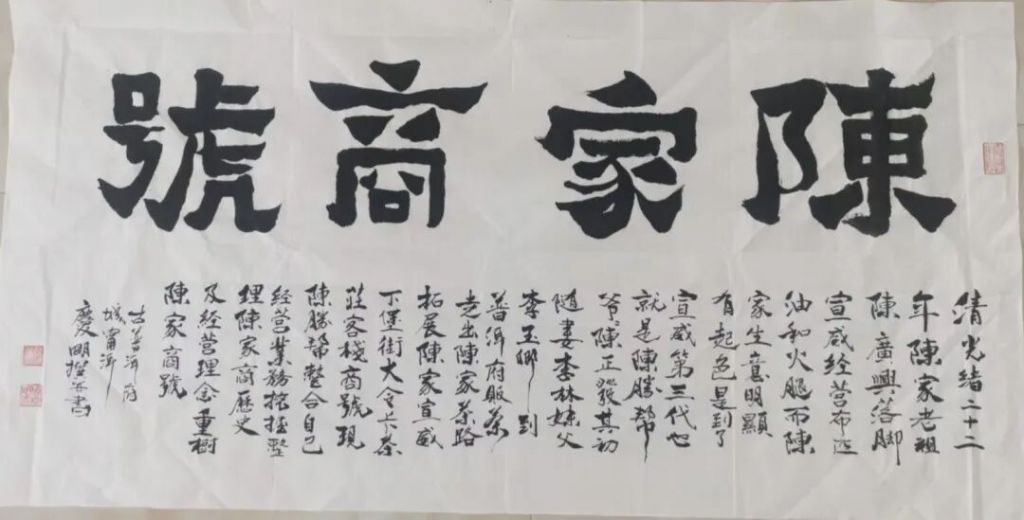 陳家商號
清光绪二十二
年陳家老祖
陳廣興落脚
宣威经营布匹
油和火腿而陳
家生意明顯
有起色是到了
宣威第三代也
就是陳勝幫
爷陳正發其初
随妻李林妹父
李玉卿到
普洱府販茶
走出陳家茶路
拓展陳家宣威
下堡街大合长茶
莊客栈商號現
陳勝幫整合自己
经营業務挖掘整
理陳家商歷史
及经营理念重樹
陳家商號
古普洱府
城甯洱
慶明撰并書